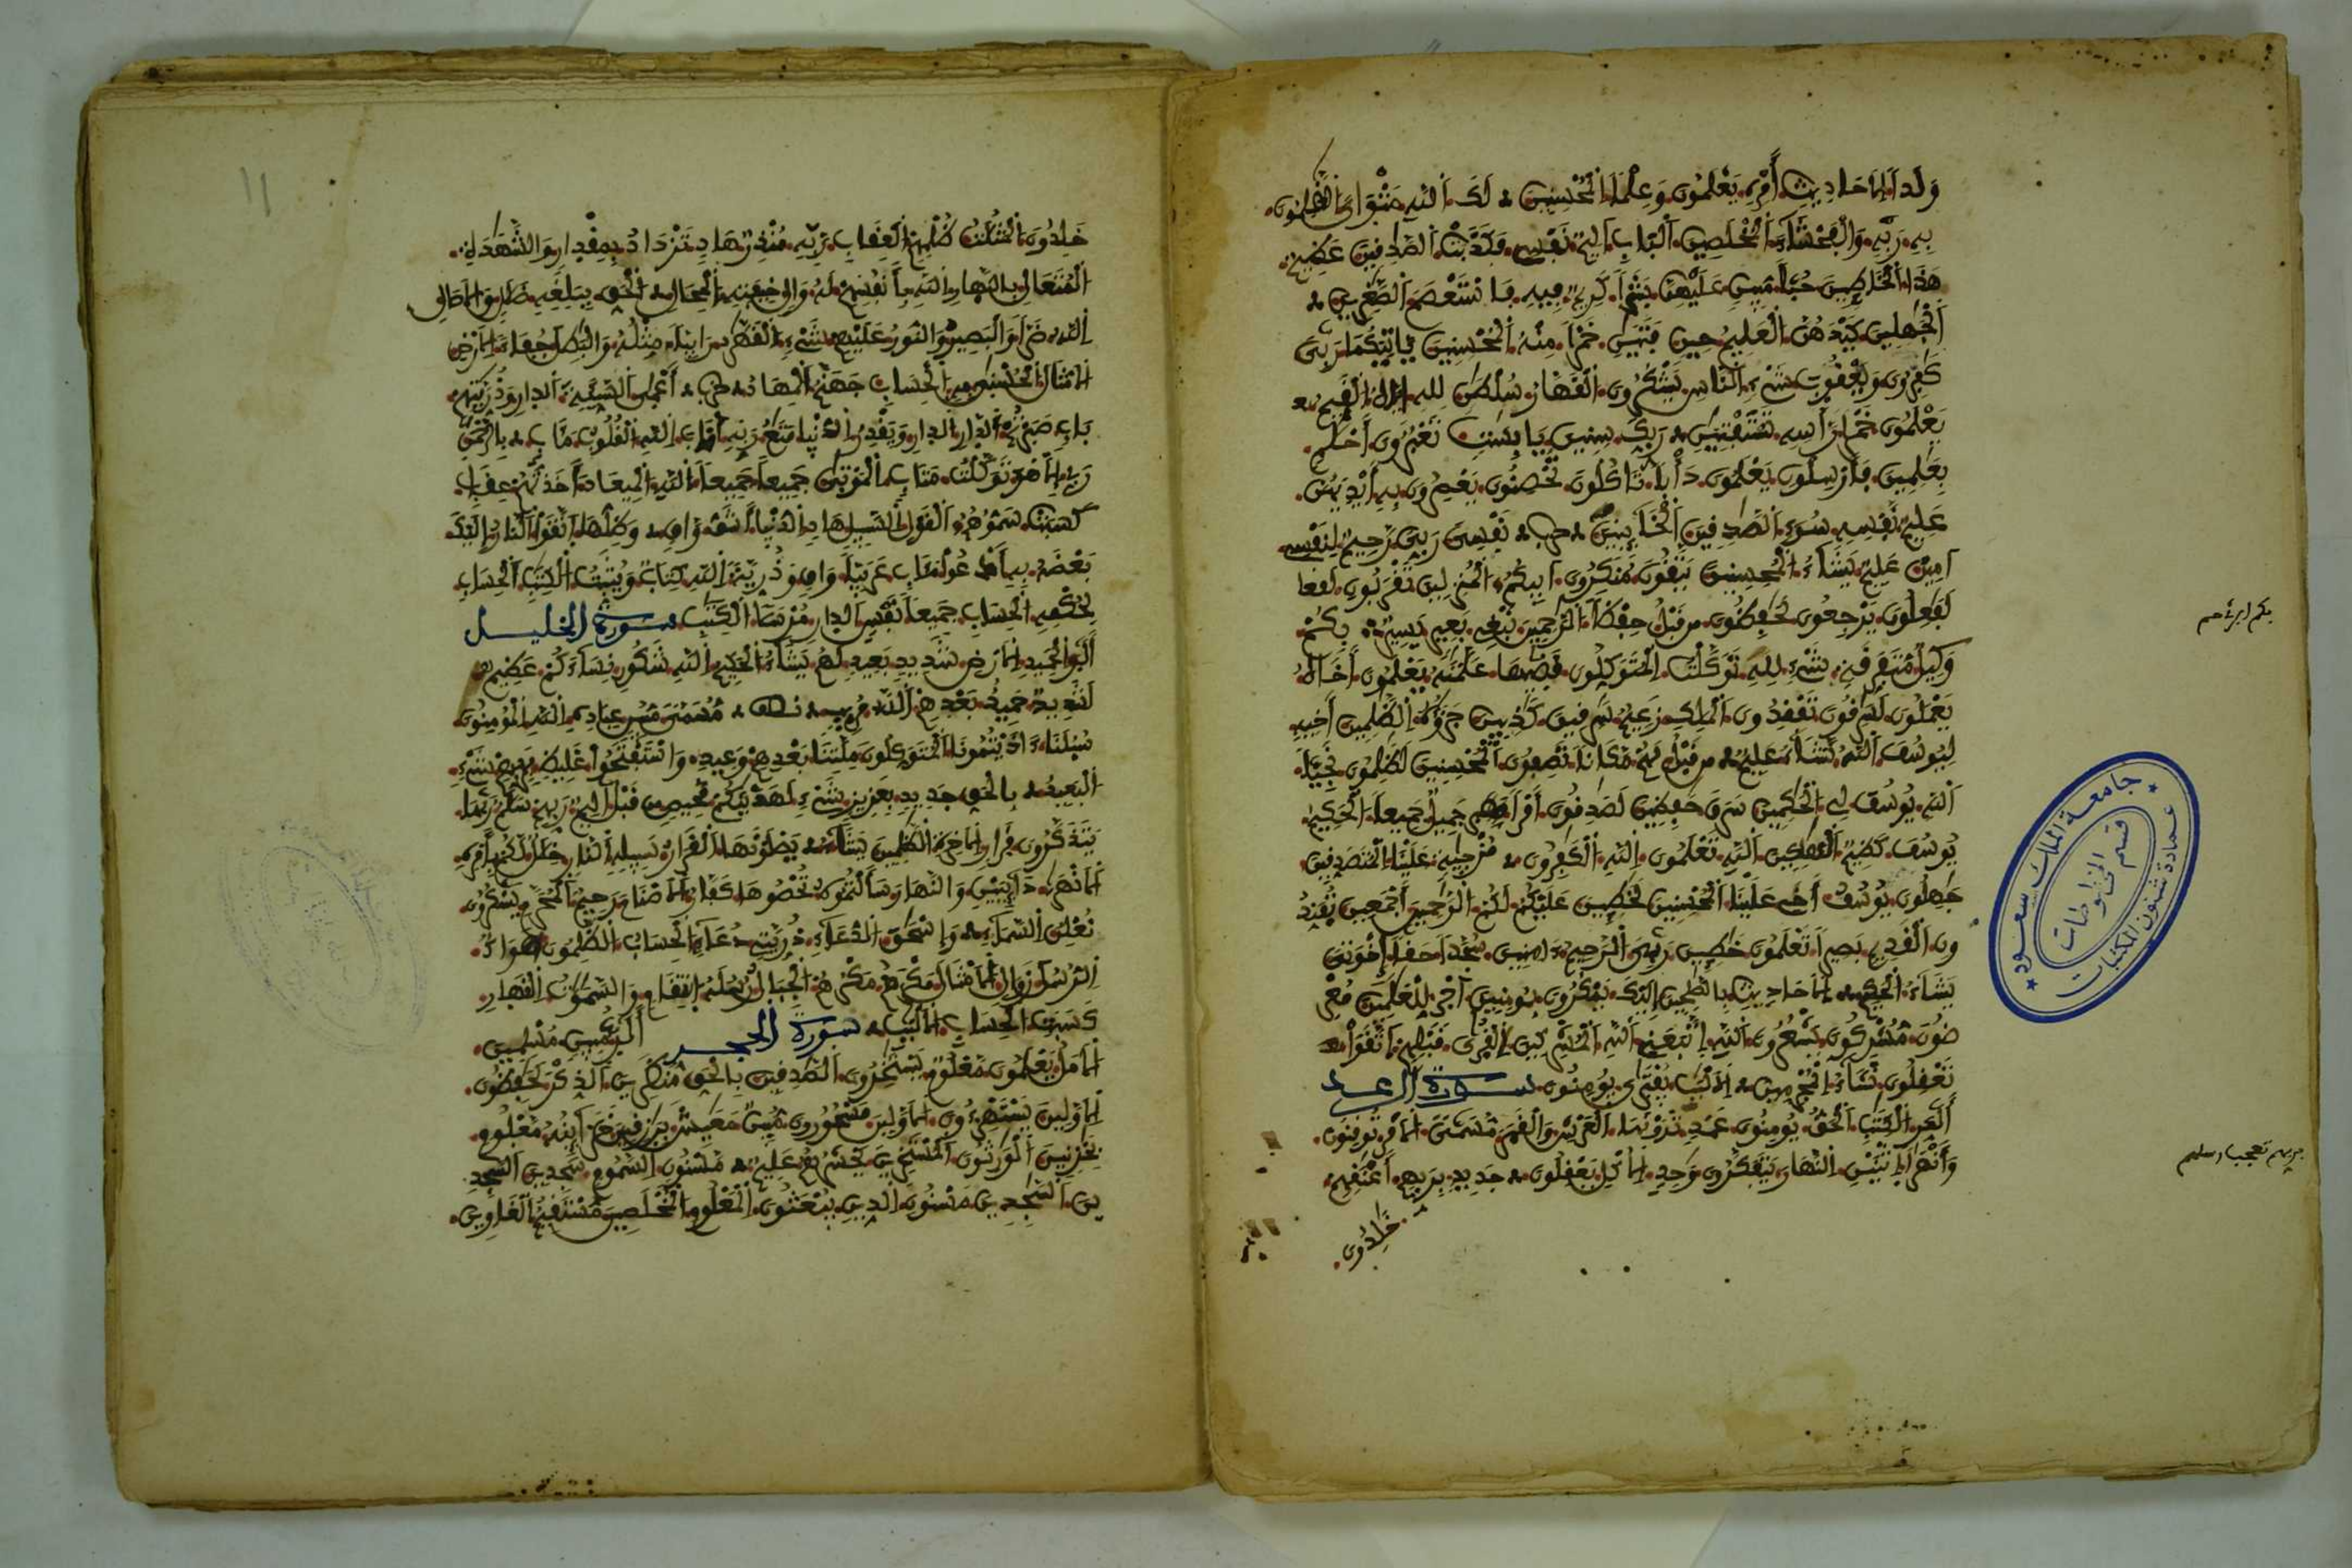 وَلَداً. الَاحَادِيثِ. أَمْرِهِ. يَعْلَمُونَ. وَعِلْماً. الْمُحْسِنِينَ. لَكَ. اللَّهِ. مَثْوَايَ. الظَّلِمُونَ.
بِهِ. رَبِّهِ. وَالْفَحْشَاءَ. الْمُخْلَصِينَ. الْبَابِ. أَلِيمٌ. نَفْسِي. فَصَدَقَتْ. الصَّدِقِينَ. عَظِيمٌ.
هَذَا. الْخَاطِينَ. حُبّاً. مُبِينٍ. عَلَيْهِنَّ. بَشَراً. كَرِيمٌ. فِيهِ. فَاسْتَعْصَمَ. الصَّغِرِينَ.
الْجَهِلِينَ. كَيْدَهُنَّ. الْعَلِيمُ. حِينٍ. فَتَيَنِ. خَمْراً. مِنْهُ. الْمُحْسِنِينَ. يَاتِيَكُمَا. رَبِّي
كَفِرُونَ. وَيَعْقُوبَ. شَيْءٍ. النَّاسِ. يَشْكُرُونَ. الْقَهَّارُ. سُلْطَنٍ. لِلهِ. الْقَيِّمُ.
يَعْلَمُونَ. خَمْراً. رَاسِهِ. تَسْتَفْتِيَنِ. رَبِّكَ. سِنِينَ. يَابِسَتٍ. تَعْبُرُونَ. أَحْلَمٍ.
بِعَلِمِينَ. فَأَرْسِلُونِ. يَعْلَمُونَ. دَأْباً. تَاكُلُونَ. تُحْصِنُونَ. يَعْصِرُونَ. بِهِ. أَيْدِيَهُنَّ.
عَلِيمٌ. نَفْسِهِ. سُوءٍ. الصَّدِقِينَ. الْخَآئِنِينَ. نَفْسِيَ. رَبِّيَ. رَحِيمٌ. لِنَفْسِي
أَمِينٌ. عَلِيمٌ. يَشَآءُ. الْمُحْسِنِينَ. يَتَّقُونَ. مُنكِرُونَ. أَبِيكُمُ. الْمُنزِلِينَ. تَقْرَبُونِ. لَفَعِلُونَ
يَرْجِعُونَ. لَحَفِظُونَ. مِن قَبْلُ. حِفْظاً. الرَّحِمِينَ. نَبْغِي. بَعِيرٍ. يَسِيرٌ. بِكُمْ
وَكِيلٌ. مُتَفَرِّقَةٍ. شَيْءٍ. لِلهِ. تَوَكَّلْتُ. الْمُتَوَكِّلُونَ. قَضَيهَا. عَلَّمْنَهُ. يَعْلَمُونَ. أَخَاهُ
يَعْمَلُونَ. لَسَرِقُونَ. تَفْقِدُونَ. الْمَلِكِ. زَعِيمٌ. سَرِقِينَ. كَذِبِينَ. جَزَؤُهُ. الظَّلِمِينَ. أَخِيهِ
لِيُوسُفَ. اللَّهُ. نَّشَآءُ. عَلِيمٌ. مِن قَبْلُ. لَهُمْ. مَكَاناً. تَصِفُونَ. الْمُحْسِنِينَ. لَظَلِمُونَ. نَجِيّاً.
اللَّهِ. يُوسُفَ. لِي. الْحَكِمِينَ. سَرَقَ. حَفِظِينَ. لَصَدِقُونَ. أَمْراً. جَمِيلٌ. جَمِيعاً. الْحَكِيمُ.
يُوسُفَ. كَظِيمٌ. الْهَلِكِينَ. اللَّهِ. تَعْلَمُونَ. اللَّهِ. الْكَفِرُونَ. مُزْجَيةٍ. عَلَيْنَا. الْمُتَصَدِّقِينَ
جَهِلُونَ. يُوسُفُ. أَخِي. عَلَيْنَا. الْمُحْسِنِينَ. لَخَطِينَ. عَلَيْكُمْ. لَكُمْ. الرَّحِمِينَ. أَجْمَعِينَ. تُفَنِّدُ
ونِ. الْقَدِيمِ. بَصِيراً. تَعْلَمُونَ. خَطِينَ. رَبِّيَ. الرَّحِيمُ. ءَامِنِينَ. سُجَّداً. حَقّاً. إِخْوَتِي
يَشَآءُ. الْحَكِيمُ. الَاحَادِيثِ. بِالصَّلِحِينَ. إِلَيْكَ. يَمْكُرُونَ. بِمُومِنِينَ. أَجْرٍ. لِلْعَلَمِينَ. مُعْرِ
ضُونَ. مُشْرِكُونَ. يَشْعُرُونَ. اللَّهِ. اتَّبَعَنِي. اللَّهِ. الْمُشْرِكِينَ. الْقُرَى. قَبْلِهِمْ. اتَّقَوْاْ
تَعْقِلُونَ. نَّشَآءُ. الْمُجْرِمِينَ. الَالْبَبِ. يُفْتَرَى. يُومِنُونَ. سورة الرعد
أَلَمِّرَ. الْكِتَبِ. الْحَقُّ. يُومِنُونَ. عَمَدٍ. تَرَوْنَهَا. الْعَرْشِ. وَالْقَمَرَ. مُسَمًّى. الَامْرَ. تُوقِنُونَ.
وَأَنْهَراً. اثْنَيْنِ. النَّهَارَ. يَتَفَكَّرُونَ. وَحِدٍ. الُاكْلِ. يَعْقِلُونَ. جَدِيدٍ. بِرَبِّهِمْ. أَعْنَقِهِمْ.
خَلِدُونَ.
جامعة الملك سعود
قسم المخطوطات
عمادة شئون المكتبات
11
خَلِدُونَ. الْمَثُلَتُ. ظُلْمِهِمْ. الْعِقَابِ. رَّبِّهِ. مُنذِرٌ. هَادٍ. تَزْدَادُ. بِمِقْدَارٍ. وَالشَّهَدَةِ.
الْمُتَعَالِ. بِالنَّهَارِ. اللَّهِ. بِأَنفُسِهِمْ. لَهُ. وَالٍ. خِيفَتِهِ. الْمِحَالِ. الْحَقِّ. بِبَلِغِهِ. ضَلَلٍ. وَالَاصَالِ
اللَّهُ. ضَرّاً. وَالْبَصِيرُ. وَالنُّورُ. عَلَيْهِمْ. شَيْءٍ. الْقَهَّرُ. رَّابِياً. مِّثْلُهُ. وَالْبَطِلَ. جُفَاءً. الَارْضِ
الَامْثَالَ. الْحُسْنَى. بِهِ. الْحِسَابِ. جَهَنَّمُ. الْمِهَادُ. أَعْمَى. السَّيِّئَةَ. الدَّارِ. وَذُرِّيَّتِهِمْ.
بَابٍ. صَبَرْتُمْ. الدَّارِ. الدَّارِ. وَيَقْدِرُ. الدُّنْيَا. مَتَعٌ. رَبِّهِ. أَنَابَ. اللَّهِ. الْقُلُوبُ. مَئَابٍ. بِالرَّحْمَنِ
رَبِّي. إِلَّا هُوَ. تَوَكَّلْتُ. مَتَابِ. الْمَوْتَى. جَمِيعاً. جَمِيعاً. اللَّهِ. الْمِيعَادَ. أَخَذْتُهُمْ. عِقَابِ.
كَسَبَتْ. سَمُّوهُمُ. الْقَوْلِ. السَّبِيلِ. هَادٍ. الدُّنْيَا. أَشَقُّ. وَاقٍ. وَظِلُّهَا. اتَّقَوا. النَّارُ. إِلَيْكَ.
بَعْضَهُ. بِهِ. أَدْعُواْ. مَئَابِ. عَرَبِيّاً. وَاقٍ. وَذُرِّيَّةً. اللَّهِ. كِتَابٌ. وَيُثَبِّتُ. الْكِتَبِ. الْحِسَابُ
لِحُكْمِهِ. الْحِسَابِ. جَمِيعاً. نَفْسٍ. الدَّارِ. مُرْسَلاً. الْكِتَبِ. سورة الخليل
أَلَرَ. الْحَمِيدِ. الَارْضِ. شَدِيدٍ. بَعِيدٍ. لَهُمْ. يَشَآءُ. الْحَكِيمُ. اللَّهِ. شَكُورٍ. نِسَآءَكُمْ. عَظِيمٌ
لَشَدِيدٌ. حَمِيدٌ. بَعْدِهِمْ. اللَّهُ. مُرِيبٍ. مُسَمًّى. مُّبِينٍ. عِبَادِهِ. اللَّهِ. الْمُومِنُونَ
سُبُلَنَا. ءَاذَيْتُمُونَا. الْمُتَوَكِّلُونَ. مِلَّتِنَا. بَعْدِهِمْ. وَعِيدِ. وَاسْتَفْتَحُواْ. غَلِيظٌ. بِرَبِّهِمْ. شَيْءٍ.
الْبَعِيدُ. بِالْحَقِّ. جَدِيدٍ. بِعَزِيزٍ. شَيْءٍ. لَهَدَيْنَكُمْ. مَّحِيصٍ. مِن قَبْلُ. أَلِيمٌ. رَبِّهِمْ. سَلَمٌ. رَبِّهَا.
يَتَذَكَّرُونَ. قَرَارٍ. الَاخِرَةِ. الظَّلِمِينَ. يَشَآءُ. يَصْلَوْنَهَا. الْقَرَارُ. سَبِيلِهِ. النَّارِ. خِلَلٌ. لَّكُمْ. بِأَمْرِهِ.
الَانْهَرَ. دَآئِبَيْنِ. وَالنَّهَارَ. سَأَلْتُمُوهُ. تُحْصُوهَا. كَفَّارٌ. الَاصْنَامَ. رَحِيمٌ. الْمُحَرَّمِ. يَشْكُرُونَ.
نُعْلِنُ. السَّمَآءِ. وَإِسْحَقَ. الدُّعَآءِ. ذُرِّيَّتِي. دُعَآءِ. الْحِسَابُ. الظَّلِمُونَ. هَوَآءٌ.
الرُّسُلَ. زَوَالٍ. الَامْثَالَ. مَكْرَهُمْ. مَكْرُهُمْ. الْجِبَالُ. رُسُلَهُ. انتِقَامٍ. وَالسَّمَوَتُ. الْقَهَّارِ.
كَسَبَتْ. الْحِسَابِ. الَالْبَبِ. سورة الحجر أَلَرَ. مُّبِينٍ. مُسْلِمِينَ.
الَامَلُ. يَعْلَمُونَ. مَّعْلُومٌ. يَسْتَخِرُونَ. الصَّدِقِينَ. بِالْحَقِّ. مُنظَرِينَ. الذِّكْرَ. لَحَفِظُونَ.
الَاوَّلِينَ. يَسْتَهْزِءُونَ. الَاوَّلِينَ. مَّسْحُورُونَ. مُّبِينٌ. مَعَيِشَ. بِرَزِقِينَ. خَزَآئِنُهُ. مَّعْلُومٍ.
بِخَزِنِينَ. الْوَرِثُونَ. الْمُسْتَخِرِينَ. يَحْشُرُهُمْ. عَلِيمٌ. مَّسْنُونٍ. السَّمُومِ. سَجِدِينَ. السَّجِدِ
ينَ. السَّجِدِينَ. مَّسْنُونٍ. الدِّينِ. يُبْعَثُونَ. الْمَعْلُومِ. الْمُخْلَصِينَ. مُسْتَقِيمٌ. الْغَاوِينَ.